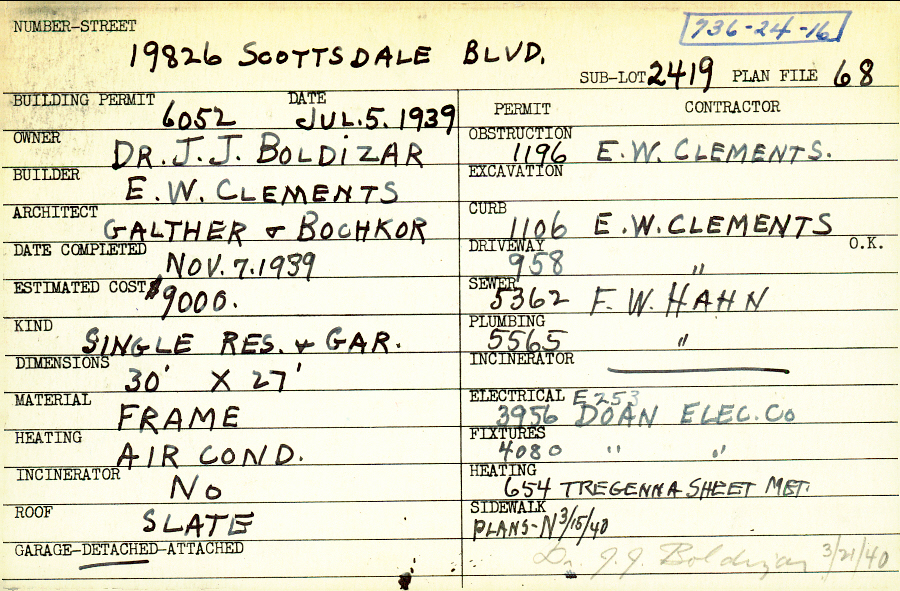 NUMBER-STREET
736-24-16
19826 SCOTTSDALE BLVD.
SUB-LOT 2419 PLAN FILE 68
BUILDING PERMIT 6052 DATE JUL.5.1939
OWNER DR. J. J. BOLDIZAR
BUILDER E.W. CLEMENTS
ARCHITECT GALTHER & BOCHKOR
DATE COMPLETED NOV. 7.1939
ESTIMATED COST $9000.
KIND SINGLE RES. & GAR.
DIMENSIONS 30' X 27'
MATERIAL FRAME
HEATING AIR COND.
INCINERATOR NO
ROOF SLATE
GARAGE-DETACHED-ATTACHED
PERMIT CONTRACTOR
OBSTRUCTION 1196 E.W. CLEMENTS.
EXCAVATION
CURB 1106 E.W. CLEMENTS
DRIVEWAY 958 " O.K.
SEWER 5362 F. W. HAHN
PLUMBING 5565 "
INCINERATOR
ELECTRICAL E253
3956 DOAN ELEC. CO
FIXTURES 4080 " "
HEATING 654 TREGENNA SHEET MET.
SIDEWALK
PLANS-N 3/15/40
Dr. J. J. Boldizar 3/21/40